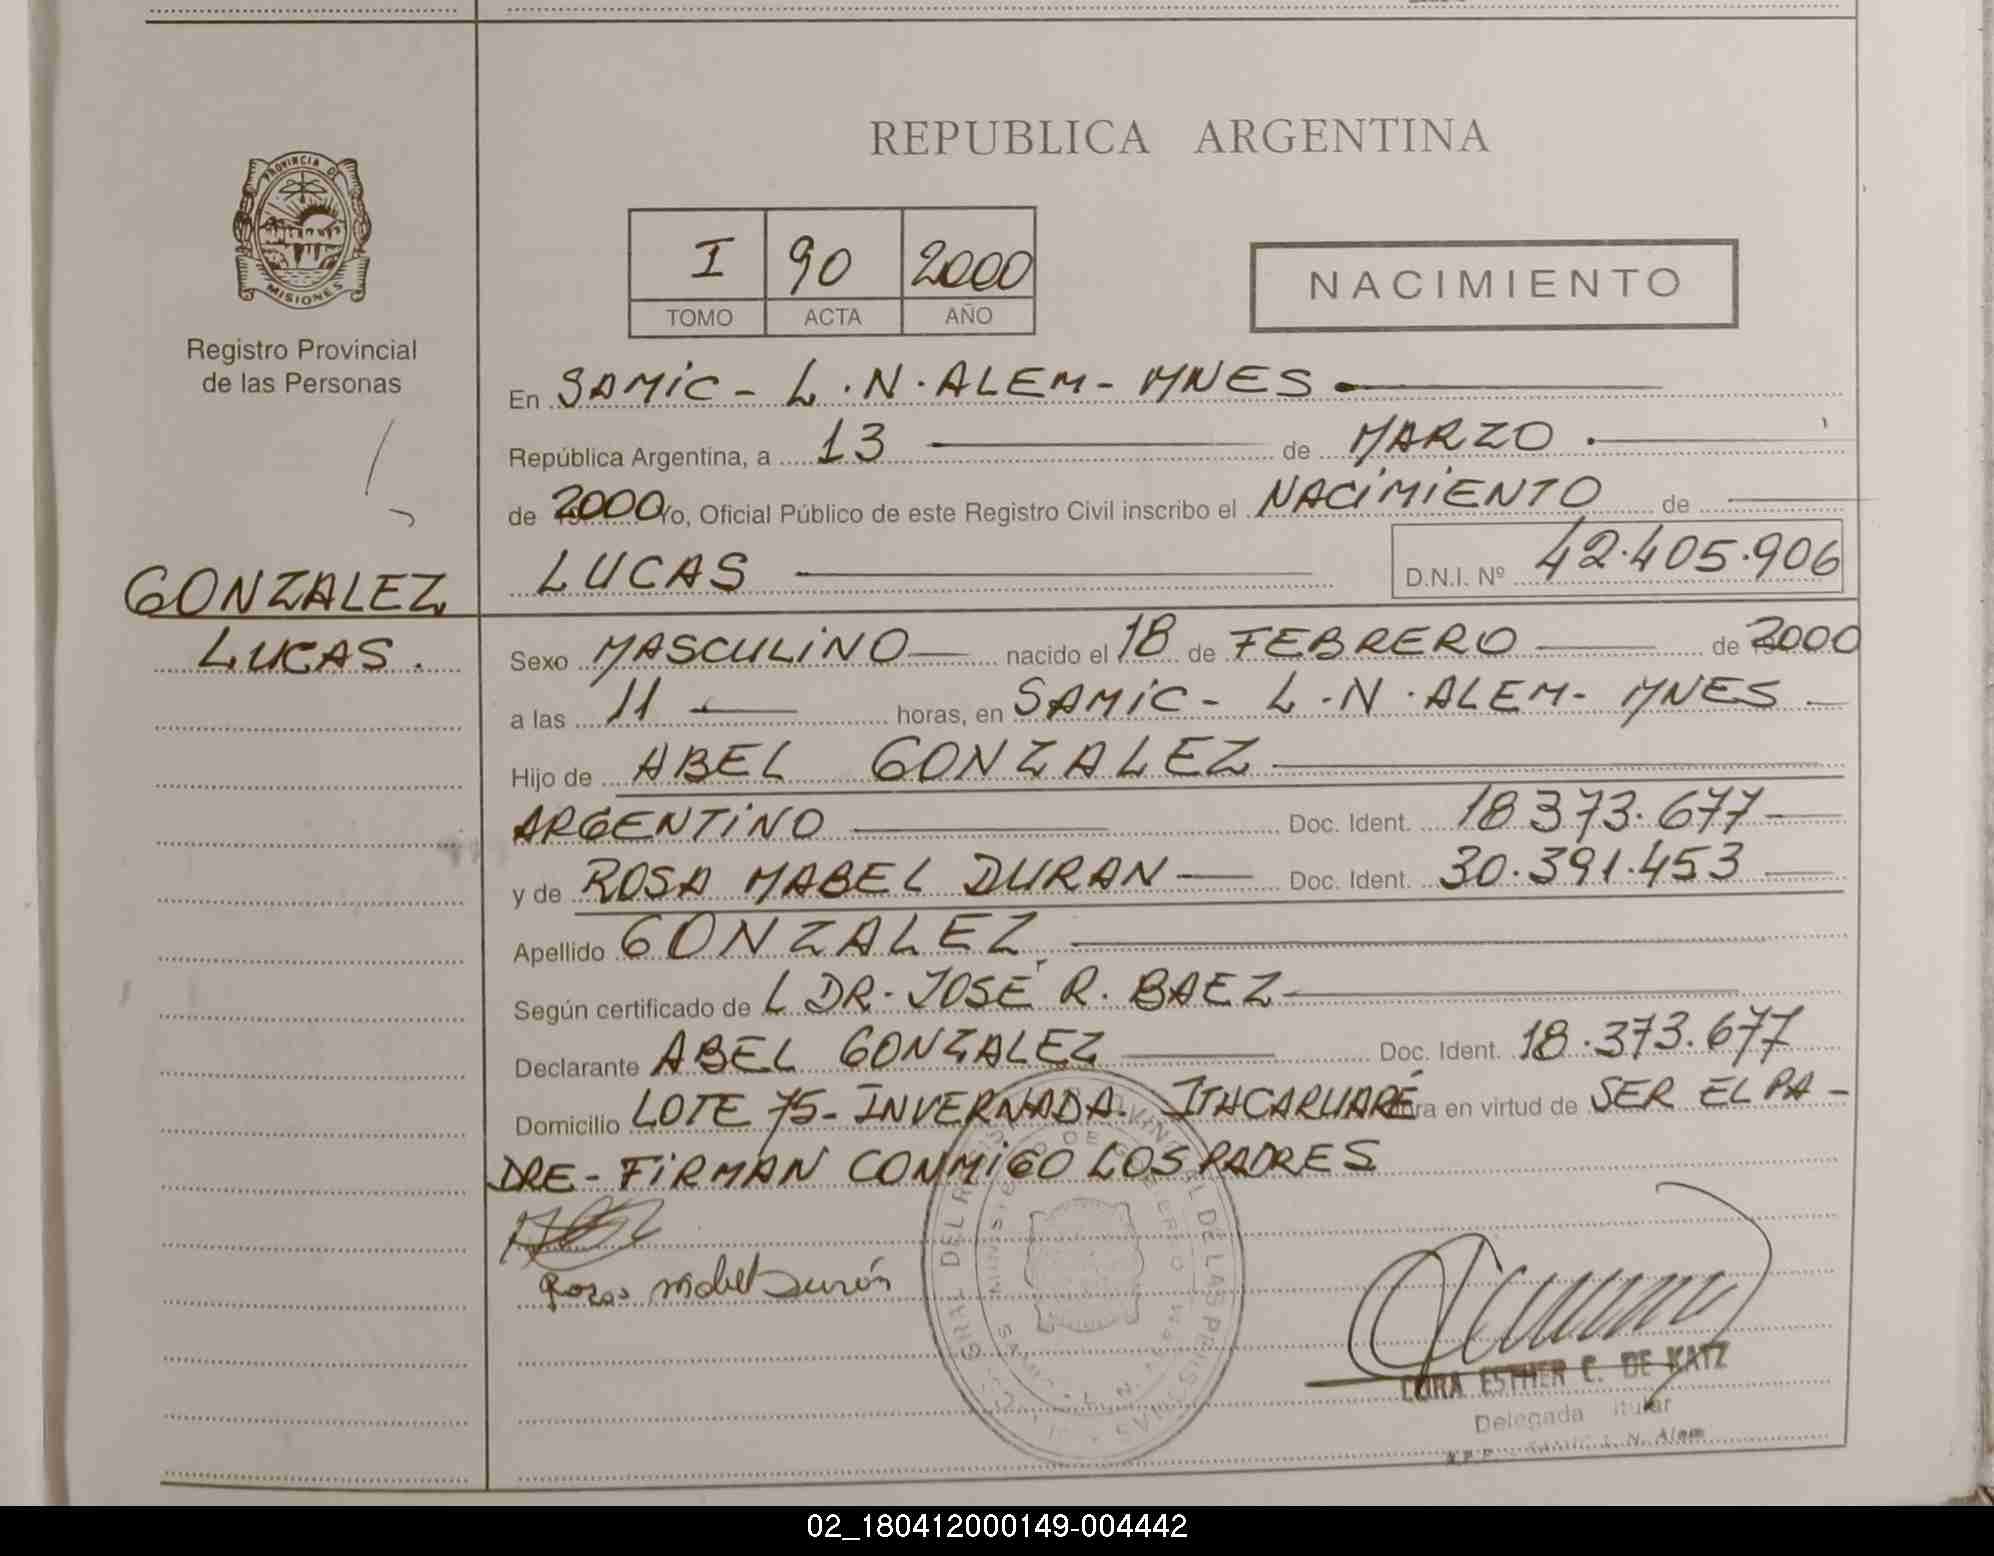 REPUBLICA ARGENTINA
PROVINCIA DE
MISIONES
Registro Provincial
de las Personas
I 90 2000
TOMO ACTA AÑO
NACIMIENTO
En SAMIC - L.N. ALEM - MNES
República Argentina, a 13 de MARZO
de 2000 Yo, Oficial Público de este Registro Civil inscribo el NACIMIENTO de
LUCAS D.N.I. Nº 42.405.906
GONZALEZ
LUCAS.
Sexo MASCULINO nacido el 18 de FEBRERO de 2000
a las 11 horas, en SAMIC - L.N. ALEM - MNES
Hijo de ABEL GONZALEZ
ARGENTINO Doc. Ident. 18373.677
y de ROSA MABEL DURAN Doc. Ident. 30.391.453
Apellido GONZALEZ
Según certificado de L DR. JOSÉ R. BAEZ
Declarante ABEL GONZALEZ Doc. Ident. 18.373.677
Domicilio LOTE 75 - INVERNADA. ITACARUARÉ en virtud de SER EL PA-
DRE - FIRMAN CONMIGO LOS PADRES
Rosa Mabel Durán
CORA ESTHER C. DE KATZ
Delegada Titular
L. N. Alem
02_180412000149-004442